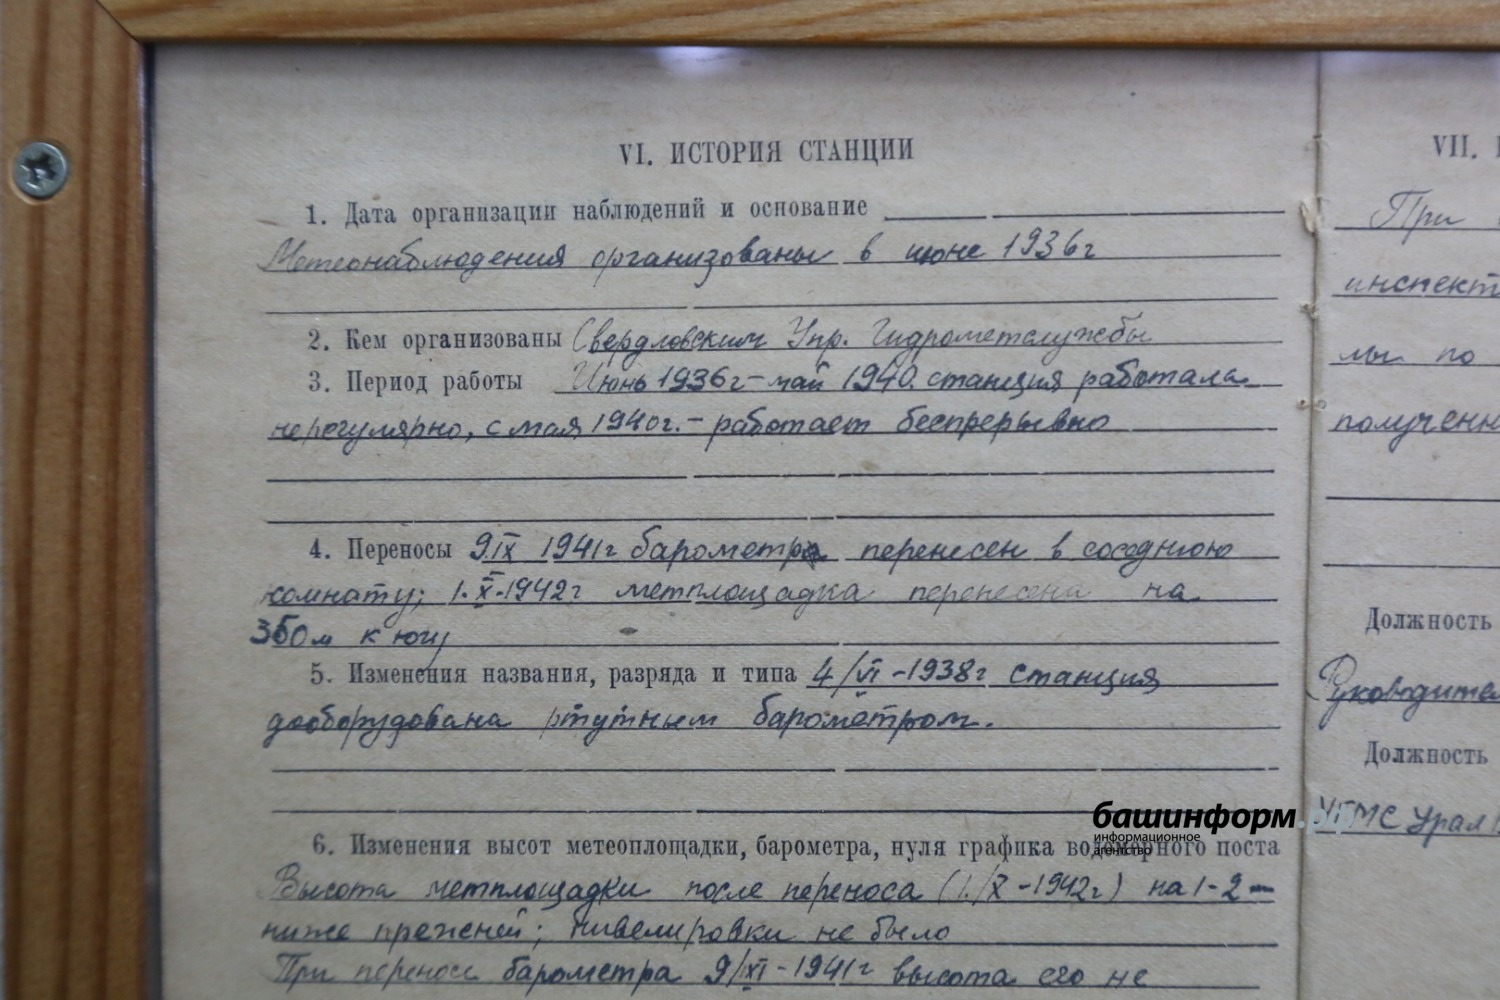 VI. ИСТОРИЯ СТАНЦИИ
1. Дата организации наблюдений и основание
Метеонаблюдения организованы в июне 1936г
2. Кем организованы Свердловским Упр. Гидрометслужбы
3. Период работы Июнь 1936г – май 1940. станция работала
нерегулярно, с мая 1940г. – работает беспрерывно
4. Переносы 9.IX 1941г барометр перенесен в соседнюю
комнату; 1.X-1942г метплощадка перенесена на
350м к югу
5. Изменения названия, разряда и типа 4/VI -1938г станция
дооборудована ртутным барометром.
6. Изменения высот метеоплощадки, барометра, нуля графика водомерного поста
Высота метплощадки после переноса (1./X -1942г) на 1-2
ниже прежней; нивелировки не было
При переносе барометра 9/XI - 1941г высота его не
VII.
При
инспект
лы по
полученн
Должность
Руководител
Должность
УГМС Урал
башинформ.рф
информационное
агентство